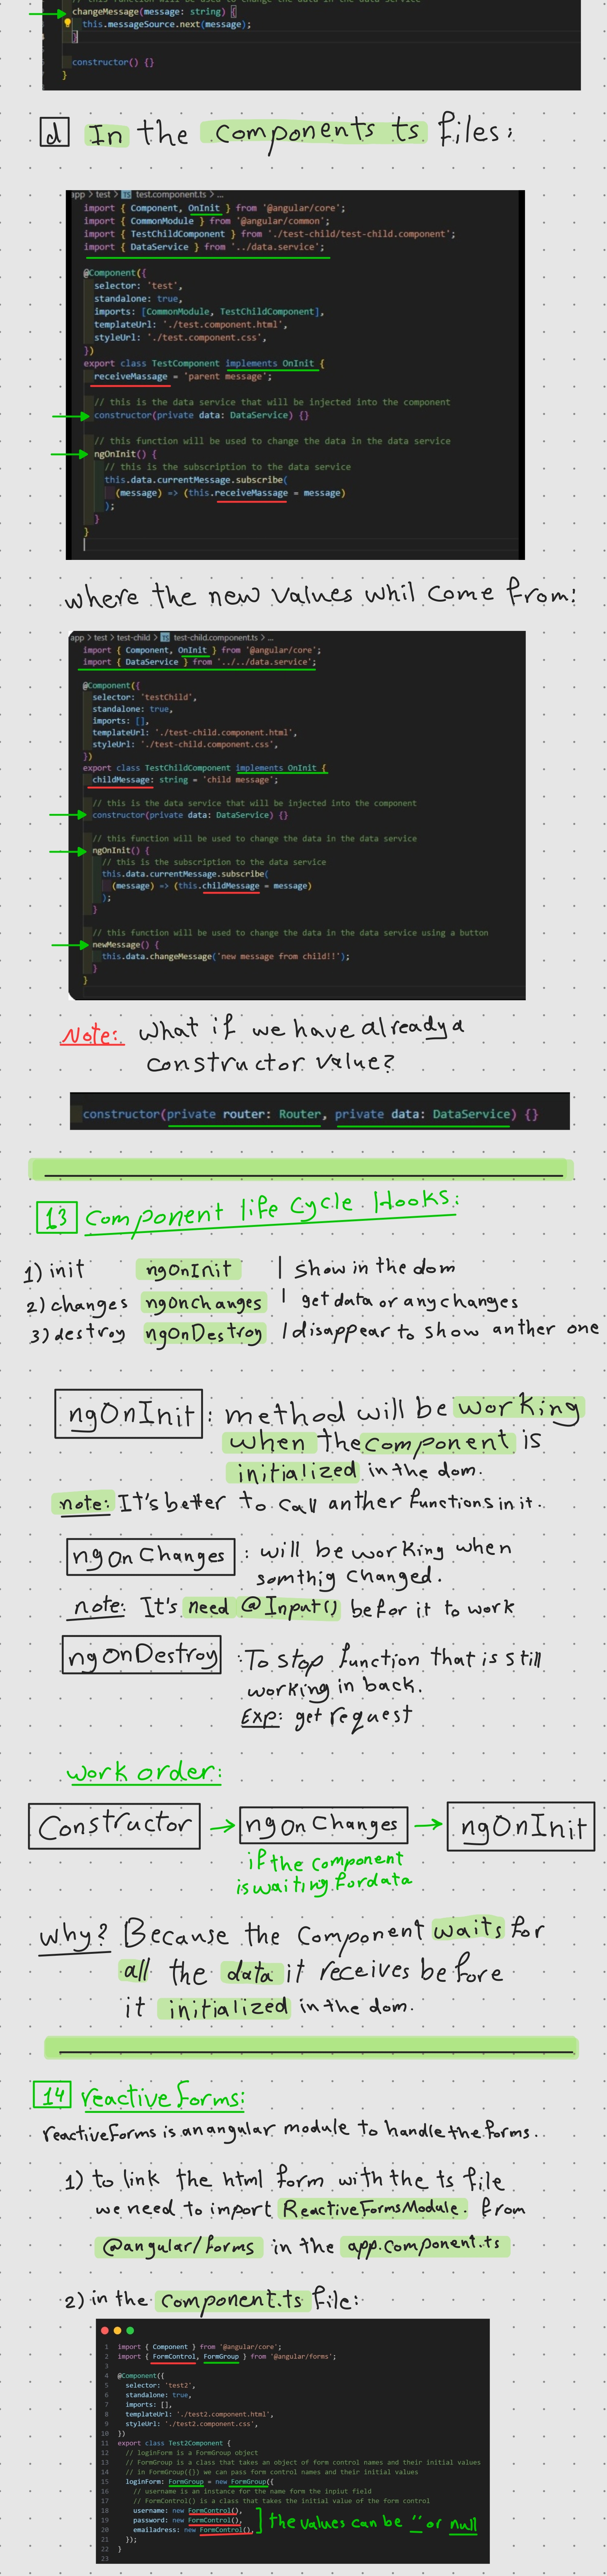 // this function will be used to change the data in the data service
changeMessage(message: string) {
this.messageSource.next(message);
}
constructor() {}
}
d In the components ts files:
app > test > TS test.component.ts > ...
import { Component, OnInit } from '@angular/core';
import { CommonModule } from '@angular/common';
import { TestChildComponent } from './test-child/test-child.component';
import { DataService } from '../data.service';
@Component({
selector: 'test',
standalone: true,
imports: [CommonModule, TestChildComponent],
templateUrl: './test.component.html',
styleUrl: './test.component.css',
})
export class TestComponent implements OnInit {
receiveMassage = 'parent message';
// this is the data service that will be injected into the component
constructor(private data: DataService) {}
// this function will be used to change the data in the data service
ngOnInit() {
// this is the subscription to the data service
this.data.currentMessage.subscribe(
(message) => (this.receiveMassage = message)
);
}
}
where the new values whil come from:
app > test > test-child > TS test-child.component.ts > ...
import { Component, OnInit } from '@angular/core';
import { DataService } from '../../data.service';
@Component({
selector: 'testChild',
standalone: true,
imports: [],
templateUrl: './test-child.component.html',
styleUrl: './test-child.component.css',
})
export class TestChildComponent implements OnInit {
childMessage: string = 'child message';
// this is the data service that will be injected into the component
constructor(private data: DataService) {}
// this function will be used to change the data in the data service
ngOnInit() {
// this is the subscription to the data service
this.data.currentMessage.subscribe(
(message) => (this.childMessage = message)
);
}
// this function will be used to change the data in the data service using a button
newMessage() {
this.data.changeMessage('new message from child!!');
}
}
Note: what if we have already a
constructor value?
constructor(private router: Router, private data: DataService) {}
13 Component life cycle Hooks:
1) init ngOnInit | show in the dom
2) changes ngOnchanges | get data or any changes
3) destroy ngOnDestroy | disappear to show anther one
ngOnInit : method will be working
when the component is
initialized in the dom.
note: It's better to call anther functions in it.
ngOnChanges : will be working when
somthig changed.
note: It's need @Input() befor it to work
ngOnDestroy : To stop function that is still
working in back.
Exp: get request
work order:
Constructor → ngOnChanges → ngOnInit
if the component
is waiting for data
why? Because the component waits for
all the data it receives before
it initialized in the dom.
14 reactive forms:
reactiveForms is an angular module to handle the forms.
1) to link the html form with the ts file
we need to import ReactiveFormsModule. from
@angular/forms in the app.component.ts
2) in the component.ts file:
1 import { Component } from '@angular/core';
2 import { FormControl, FormGroup } from '@angular/forms';
3
4 @Component({
5 selector: 'test2',
6 standalone: true,
7 imports: [],
8 templateUrl: './test2.component.html',
9 styleUrl: './test2.component.css',
10 })
11 export class Test2Component {
12 // loginForm is a FormGroup object
13 // FormGroup is a class that takes an object of form control names and their initial values
14 // in FormGroup({}) we can pass form control names and their initial values
15 loginForm: FormGroup = new FormGroup({
16 // username is an instance for the name form the inpiut field
17 // FormControl() is a class that takes the initial value of the form control
18 username: new FormControl(),
19 password: new FormControl(), the values can be '' or null
20 emailadress: new FormControl(),
21 });
22 }
23